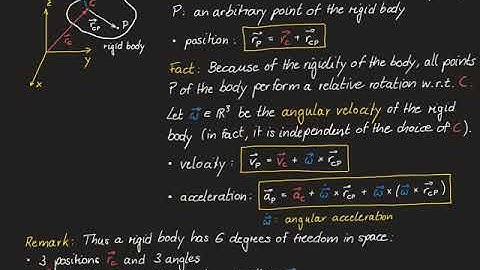 z
C
r_CP
P
r_C
y
rigid body
x
P: an arbitrary point of the rigid body
• position: r⃗_P = r⃗_C + r⃗_CP
Fact: Because of the rigidity of the body, all points
P of the body perform a relative rotation w.r.t. C.
Let ω⃗ ∈ ℝ³ be the angular velocity of the rigid
body (in fact, it is independent of the choice of C).
• velocity: v⃗_P = v⃗_C + ω⃗ × r⃗_CP
• acceleration: a⃗_P = a⃗_C + ω⃗̇ × r⃗_CP + ω⃗ × (ω⃗ × r⃗_CP)
ω⃗̇: angular acceleration
Remark: Thus a rigid body has 6 degrees of freedom in space:
• 3 positions r⃗_C and 3 angles